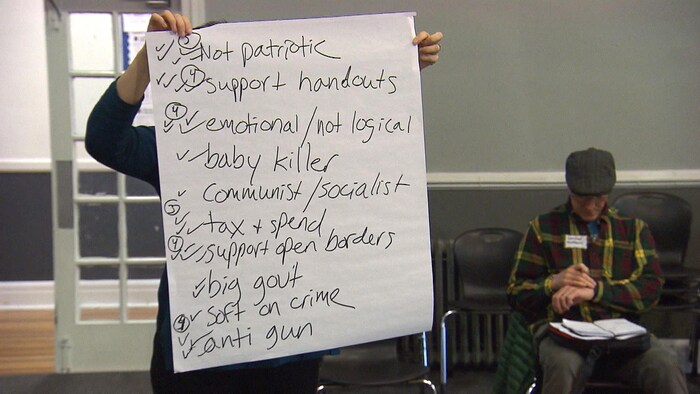 Not patriotic
④ support handouts
④ emotional/not logical
baby killer
communist/socialist
tax + spend
④ support open borders
big gov't
soft on crime
④ anti gun